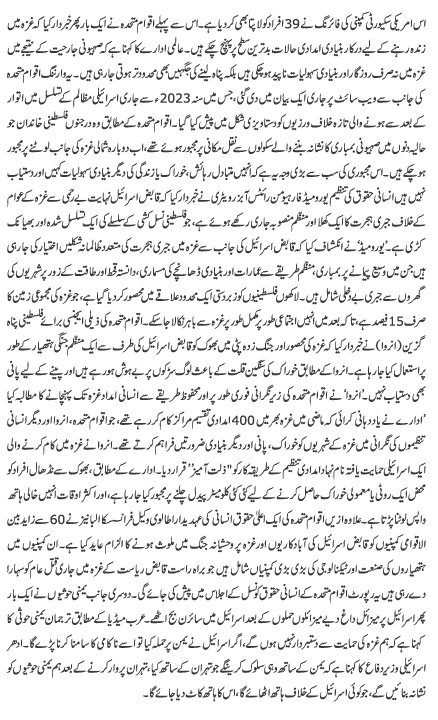 اس امریکی سکیورٹی کمپنی کی فائرنگ نے 39 افراد کو لاپتا بھی کردیا ہے۔ اس سے پہلے اقوام متحدہ نے ایک بار پھر خبردار کیا کہ غزہ میں
زندہ رہنے کے لیے درکار بنیادی امدادی حالات بدترین سطح پر پہنچ چکے ہیں۔ عالمی ادارے کا کہنا ہے کہ صہیونی جارحیت کے نتیجے میں
غزہ میں نہ صرف روزگار اور بنیادی سہولیات ناپید ہوچکی ہیں بلکہ پناہ لینے کی جگہیں بھی محدود تر ہوتی جارہی ہیں۔ یہ وارننگ اقوام متحدہ
کی جانب سے ویب سائٹ پر جاری ایک بیان میں دی گئی، جس میں سنہ 2023ء سے جاری اسرائیلی مظالم کے تسلسل میں اتوار
کے بعد سے ہونے والی تازہ خلاف ورزیوں کو دستاویزی شکل میں پیش کیا گیا۔ اقوام متحدہ کے مطابق وہ درجنوں فلسطینی خاندان جو
حالیہ دنوں میں صہیونی بمباری کا نشانہ بننے والے سکولوں سے نقل مکانی پر مجبور ہوئے تھے، اب دوبارہ شمالی غزہ کی جانب لوٹنے پر مجبور
ہیں۔ اس مجبوری کی سب سے بڑی وجہ یہ ہے کہ انہیں متبادل رہائش، خوراک یا زندگی کی دیگر بنیادی سہولیات کہیں اور دستیاب
نہیں ہیں انسانی حقوق کی تنظیم یورومیڈ فار ہیومن رائٹس آبزرویٹری نے خبردار کیا کہ قابض اسرائیل نہایت بے رحمی سے غزہ کے عوام
کے خلاف جبری ہجرت کا ایک کھلا اور منظم منصوبہ جاری رکھے ہوئے ہے، جو فلسطینی نسل کشی کے سلسلے کی ایک تسلسل شدہ اور بھیانک
کڑی ہے۔ 'یورومیڈ' نے انکشاف کیا کہ قابض اسرائیل کی جانب سے غزہ میں جبری ہجرت کی متعدد ظالمانہ شکلیں اختیار کی جارہی
ہیں جن میں وسیع پیمانے پر بمباری، منظم طریقے سے عمارات اور بنیادی ڈھانچے کی مسماری، دانستہ قحط اور طاقت کے زور پر شہریوں کی
گھروں سے جبری بے دخلی شامل ہیں۔ لاکھوں فلسطینیوں کو زبردستی ایک محدود علاقے میں محصور کردیا گیا ہے، جو غزہ کی مجموعی زمین کا
صرف 15 فیصد ہے، تاکہ بعد میں انہیں اجتماعی طور پر مکمل طور پر غزہ سے باہر نکالا جاسکے۔ اقوام متحدہ کی ذیلی ایجنسی برائے فلسطینی پناہ
گزین (انروا) نے خبردار کیا کہ غزہ کی محصور اور جنگ زدہ پٹی میں بھوک کو قابض اسرائیل کی طرف سے ایک منظم جنگی ہتھیار کے طور
پر استعمال کیا جارہا ہے۔ انروا کے مطابق خوراک کی سنگین قلت کے باعث لوگ سڑکوں پر بے ہوش ہورہے ہیں اور پینے کے لیے پانی
بھی دستیاب نہیں۔ 'انروا' نے اقوام متحدہ کی زیر نگرانی فوری طور پر اور محفوظ طریقے سے انسانی امداد غزہ تک پہنچانے کا مطالبہ کیا
'ادارے نے یاد دہانی کرائی کہ ماضی میں غزہ بھر میں 400 امدادی تقسیم مراکز کام کررہے تھے، جو اقوام متحدہ، انروا اور دیگر انسانی
تنظیموں کی نگرانی میں غزہ کے شہریوں کو خوراک، پانی اور دیگر بنیادی ضرورتیں فراہم کرتے تھے۔ انروا نے غزہ میں کام کرنے والی
ایک اسرائیلی حمایت یافتہ نام نہاد امدادی تنظیم کے طریقہ کار کو "ذلت آمیز" قرار دیا۔ ادارے کے مطابق، بھوک سے نڈھال افراد کو
محض ایک روٹی یا معمولی خوراک حاصل کرنے کے لیے کئی کئی کلومیٹر پیدل چلنے پر مجبور کیا جارہا ہے، اور اکثر اوقات انہیں خالی ہاتھ
واپس لوٹنا پڑتا ہے۔ علاوہ ازیں اقوام متحدہ کی ایک اعلیٰ حقوق انسانی کی عہدیدار اطالوی وکیل فرانسسکا البانیز نے 60 سے زاید بین
الاقوامی کمپنیوں کو قابض اسرائیل کی آبادکاریوں اور غزہ پر وحشیانہ جنگ میں ملوث ہونے کا الزام عاید کیا ہے۔ ان کمپنیوں میں
ہتھیاروں کی صنعت اور ٹیکنالوجی کی بڑی بڑی کمپنیاں شامل ہیں جو براہ راست قابض ریاست کے غزہ میں جاری قتل عام کو سہارا
دے رہی ہیں یہ رپورٹ اقوام متحدہ کے انسانی حقوق کونسل کے اجلاس میں پیش کی جائے گی۔ دوسری جانب یمنی حوثیوں نے ایک بار
پھر اسرائیل پر میزائل داغ دیے میزائلوں حملوں کے بعد اسرائیل میں سائرن بج اٹھے۔ عرب میڈیا کے مطابق ترجمان یمنی حوثی کا
کہنا ہے کہ ہم غزہ کی حمایت سے دستبردار نہیں ہوں گے، اگر اسرائیل نے یمن پر حملہ کیا تو اسے ناکامی کا سامنا کرنا پڑے گا۔ ادھر
اسرائیلی وزیر دفاع کا کہنا ہے کہ یمن کے ساتھ وہی سلوک کریں گے جو تہران کے ساتھ کیا، تہران پر وار کرنے کے بعد ہم یمنی حوثیوں کو
نشانہ بنائیں گے، جو کوئی اسرائیل کے خلاف ہاتھ اٹھائے گا، اس کا ہاتھ کاٹ دیا جائے گا۔